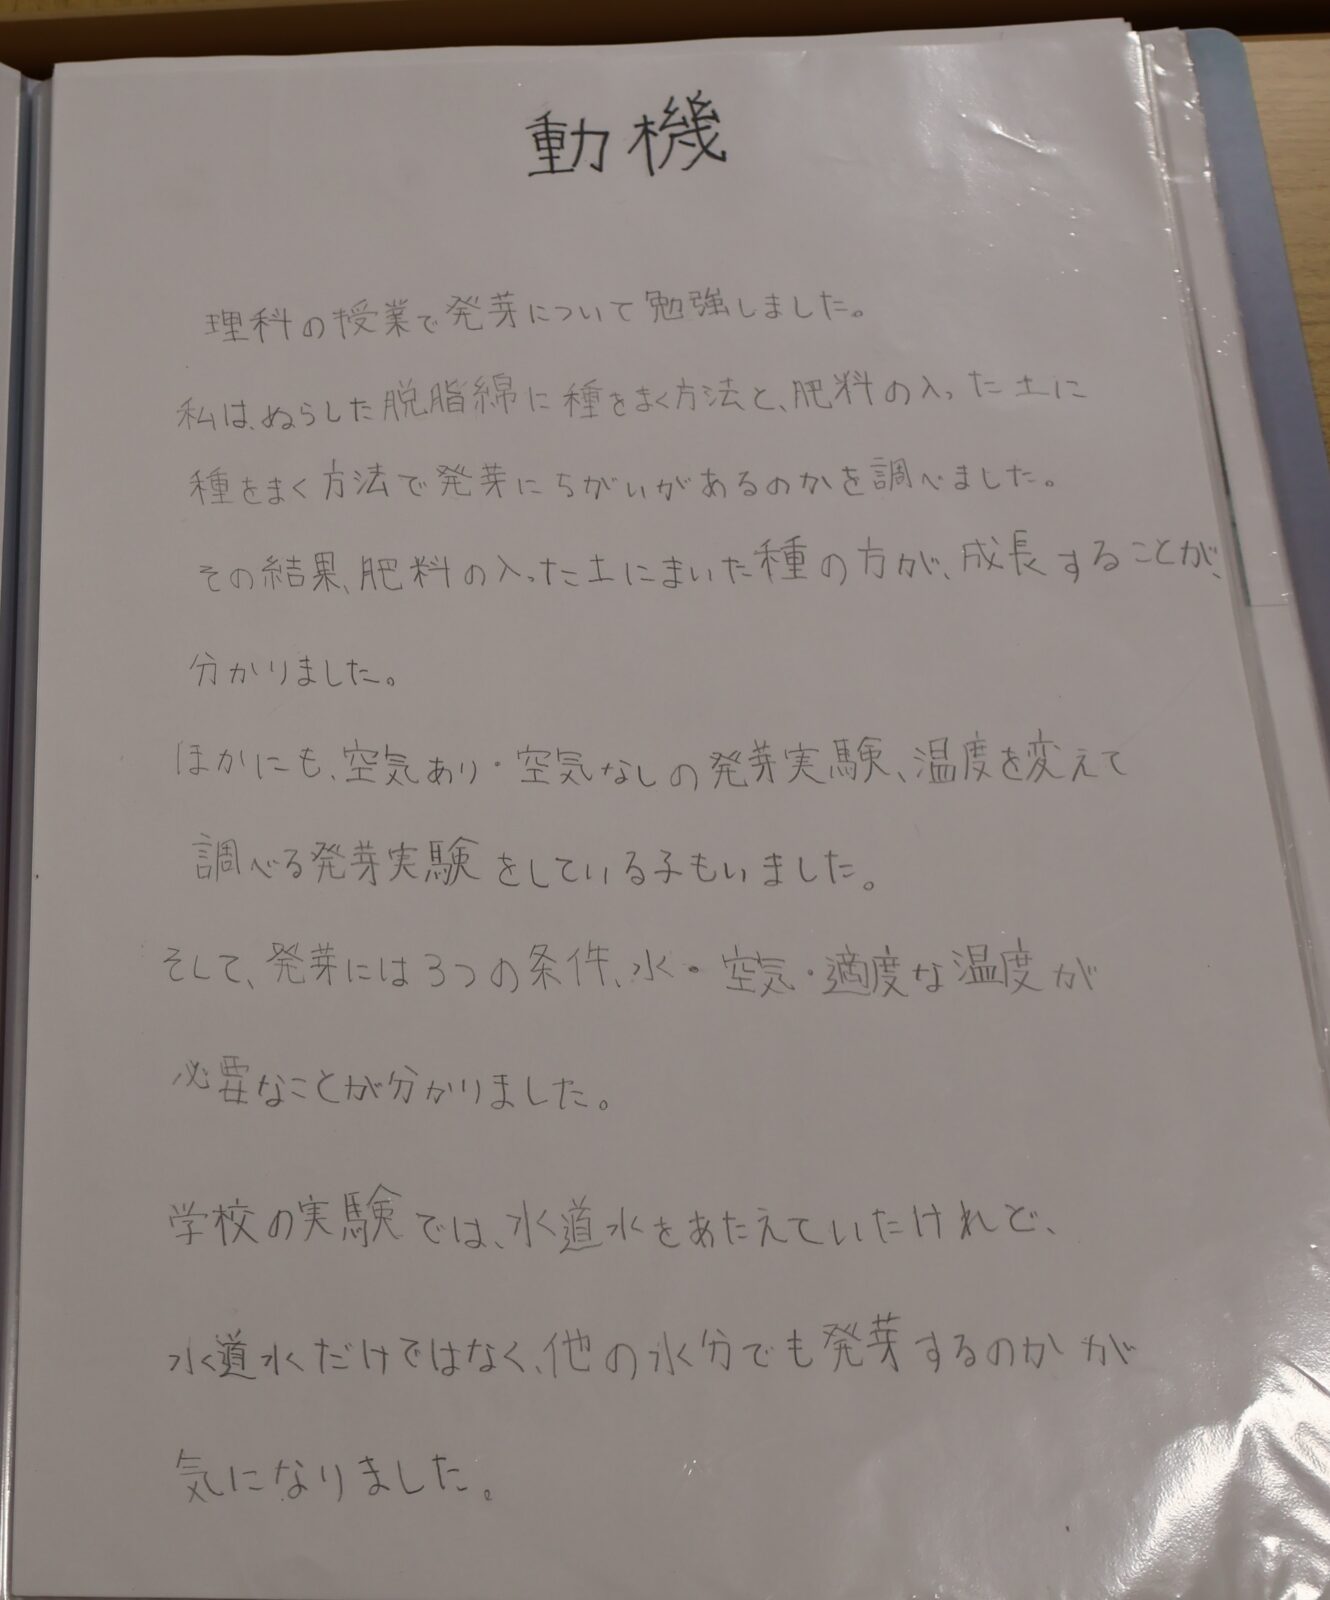 動機
理科の授業で発芽について勉強しました。
私は、ぬらした脱脂綿に種をまく方法と、肥料の入った土に
種をまく方法で発芽にちがいがあるのかを調べました。
その結果、肥料の入った土にまいた種の方が、成長することが、
分かりました。
ほかにも、空気あり・空気なしの発芽実験、温度を変えて
調べる発芽実験をしている子もいました。
そして、発芽には3つの条件、水・空気・適度な温度が
必要なことが分かりました。
学校の実験では、水道水をあたえていたけれど、
水道水だけではなく、他の水分でも発芽するのかが
気になりました。